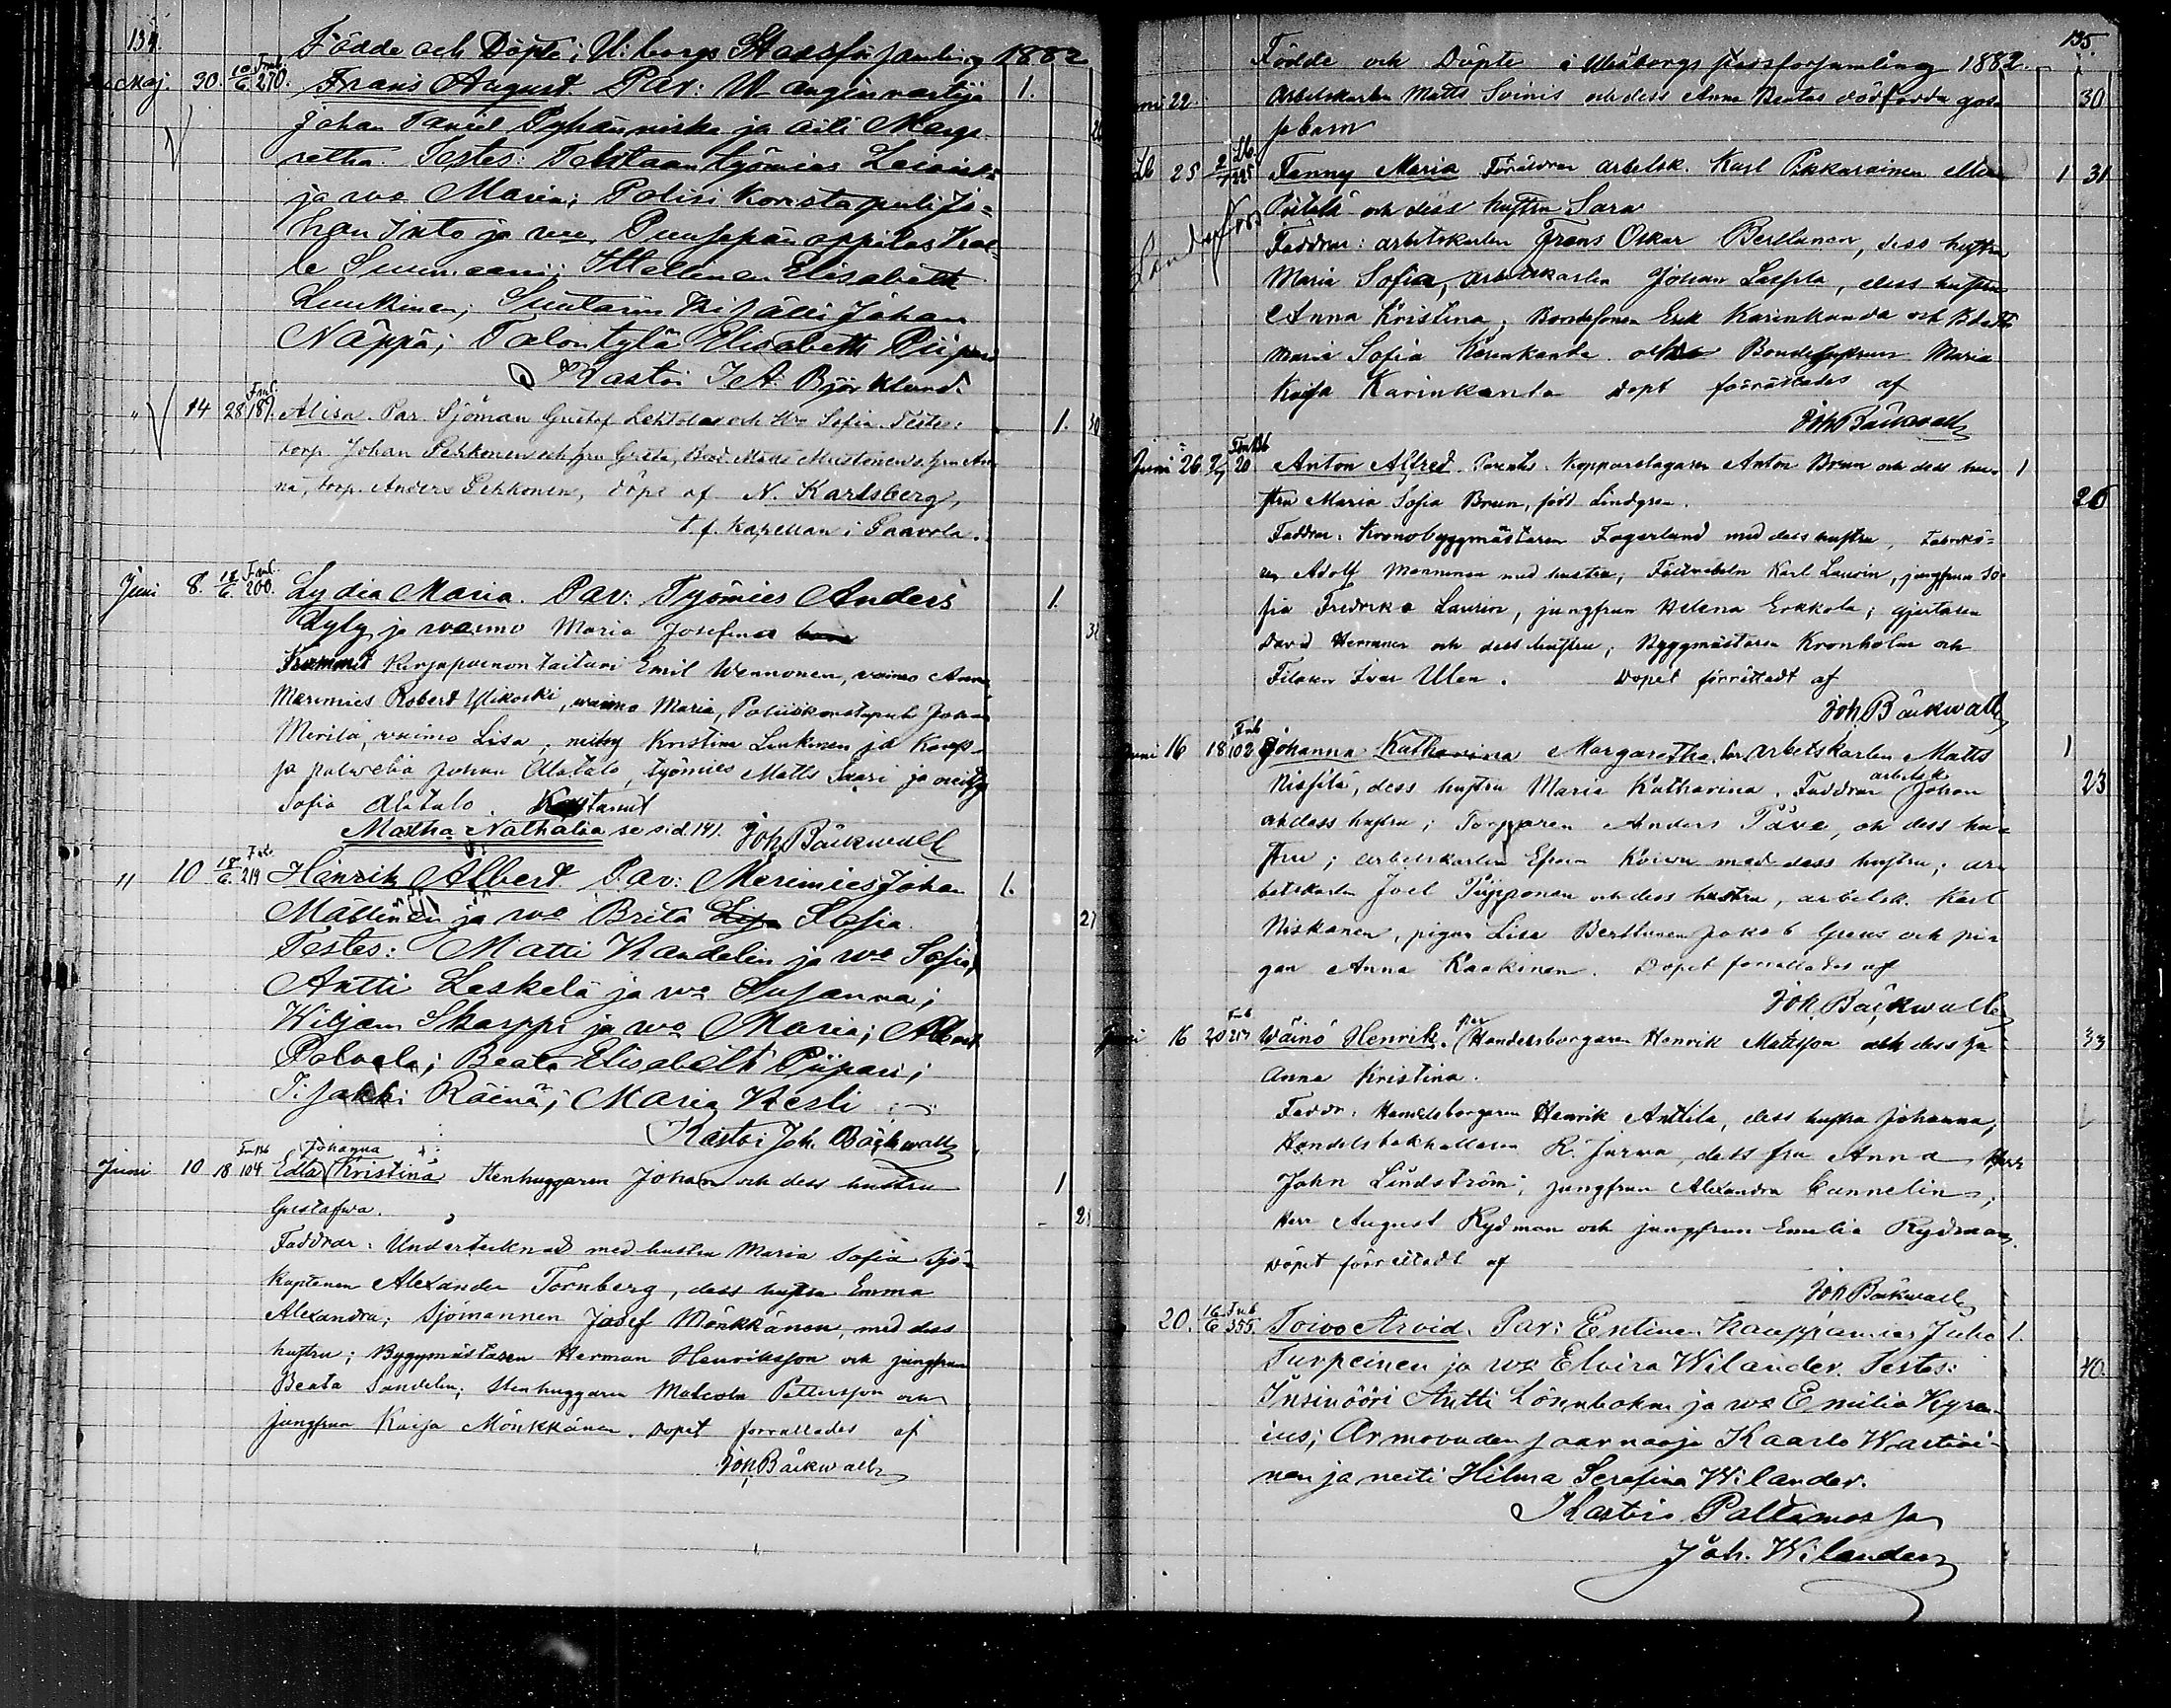 134.
Födde och Döpte i U:borgs Stadsförsamling 1882
Maj. 30. 10/6 270. Frans August Par: Wanginvartija 1.
Johan Daniel Pyhänniska ja Aiti Marga
retha. Testes: Tehtaan työmies
ja wo Maria; Polisi Konstapeli Jo=
han Into ja wo, Puusepän oppilas Kal
le Suomeeni; Itsellinen Elisabeth
Luukinen; Suutarin Kisälli Johan
Näppä; Talontytär Elisabeth Piipari
Kastoi I A Björklund.
14 28 187. Alisa. Par. Sjöman Gustaf Lehtola och Hu Sofia. Testes: 1. 30
torp. Johan Pehkonen och fru Greta, Matts
na, torp. Anders Pehkonen, döpt af N. Karlsberg,
t. f. Kapellan i Paavola.
Juni 8. 18/6 200. Lydia Maria. Par: Työmies Anders 1.
Lyly ja waimo Maria Josefina
Kummit Kirjapainon taituri Emil Wennonen, vaimo Anna,
Merimies Robert Ylikoski, waimo Maria, Poliiskonstapeli Johan
Merilä, vaimo Lisa, neitsy Kristina Linkinen ja Kaup-
pa palvelia Johan Alatalo, työmies Matts Saari ja neitsy
Sofia Alatalo. Kastanut
Martha Nathalia se sid. 141. Joh Bäckwall
" 10 18/6 219 Hinrik Albert. Par: Merimies Johan 1.
Mättinen ja wo Brita Sofia. 27
Testes: Matti Kandelin ja wo Sofia;
Antti Leskelä ja wo Susanna;
Wiljam Skarppi ja wo Maria; Albert
Palvela; Beata Elisabeth Piipari;
I: Jakki Räinä; Maria Kesti
Kastoi Joh. Bäckwall
Johanna
Juni 10 18 104 Edla Kristina Stenhuggaren Johan och dess hustru 1
Gustafva.
Faddrar: Undertecknad med hustru Maria Sofia Sjö=
kaptenen Alexander Tornberg, dess hustru Emma
Alexandra; Sjömannen Josef Mönkkänen, med dess
hustru; Byggmästaren Herman Henriksson och jungfrun
Beata Sandelin; Stenhuggaren Malcolm Pettersson och
jungfrun Kaisa Mönkkänen. Dopet forrattades af
Joh Bäckwall
135.
Födde och Döpte i Uleåborgs stadsforsamling 1882.
22. Arbetskarlen Matts Soinis och dess Anna Beatas dödfödda goss 30
sebarn
25 Fanny Maria Föräldrar arbetsk. Karl Pikkarainen 1 31
och dess hustru Sara
Faddrar: arbetskarlen Frans Oskar Bertlunen, dess hustru
Maria Sofia, Arbetskarlen Johan dess hustru
Anna Kristina, Bondesonen Erik Karinkanda och
Maria Sofia Karinkanta och Bondehustrun Maria
Kaisa Karinkanta dopt förrättades af
Joh Bäckwall
Juni 26. 20 Anton Alfred. Parents. Kopparslagaren Anton Brun och dess hu= 1
stru Maria Sofia Brun, född Lindgren. 26
Faddrar: Kronobyggmästaren Fagerlund med dess hustru, Fabriks=
Adolf Manninen med hustru; Fältvebeln Karl Laurin, jungfrun So=
fia Fredrika Laurin, jungfrun Helena Erkkola; gjutaren
David Hermanen och dess hustru, Byggmästaren Kronholm och
Filaren Ivar Ulen. Dopet förrättadt af
Joh Bäckwall
Juni 16 18 102 Johanna Katharina Margaretha. Par Arbetskarlen Matts 1
Nissilä, dess hustru Maria Katharina. Faddrar arbetsk Johan 23
och dess hustru; Torparen Anders Päve, och dess hu=
stru; arbetskarlen Efraim Koivu med dess hustru; ar
betskarlen Joel Tupponen och dess hustru, arbetsk. Karl
Niskanen, pigan Lisa Berttunen Jakob Grens och pi=
gan Anna Kaakinen. Dopet forrattades af
Joh Bäckwall
Juni 16 20 Wäinö Henrik. Par Handelsborgaren Henrik Matsson och dess fru 33
Anna Kristina.
Faddr. Handelsborgaren Henrik Anttila, dess hustru Johanna,
Handelsbokhallaren R. Jurva, dess fru Anna, Herr
John Lindström; jungfrun Alexandra Cannelin;
Herr August Rydman och jungfrun Emelia Rydman.
Döpet förrättadt af
Joh Bäckwall
20. 16/6 355. Toivo Arvid. Par: Entinen Kauppamies Juho 1.
Turpeinen ja wo Elvira Wilander. Testes: 40.
Insinööri Antti Lösenbohm ja wo Emilia Kyran
ius; Armovuoden saarnaaja Kaarlo Wartiai-
nen ja neiti Hilma Serafina Wilander.
Kastoi Paltamossa
Joh. Wilander